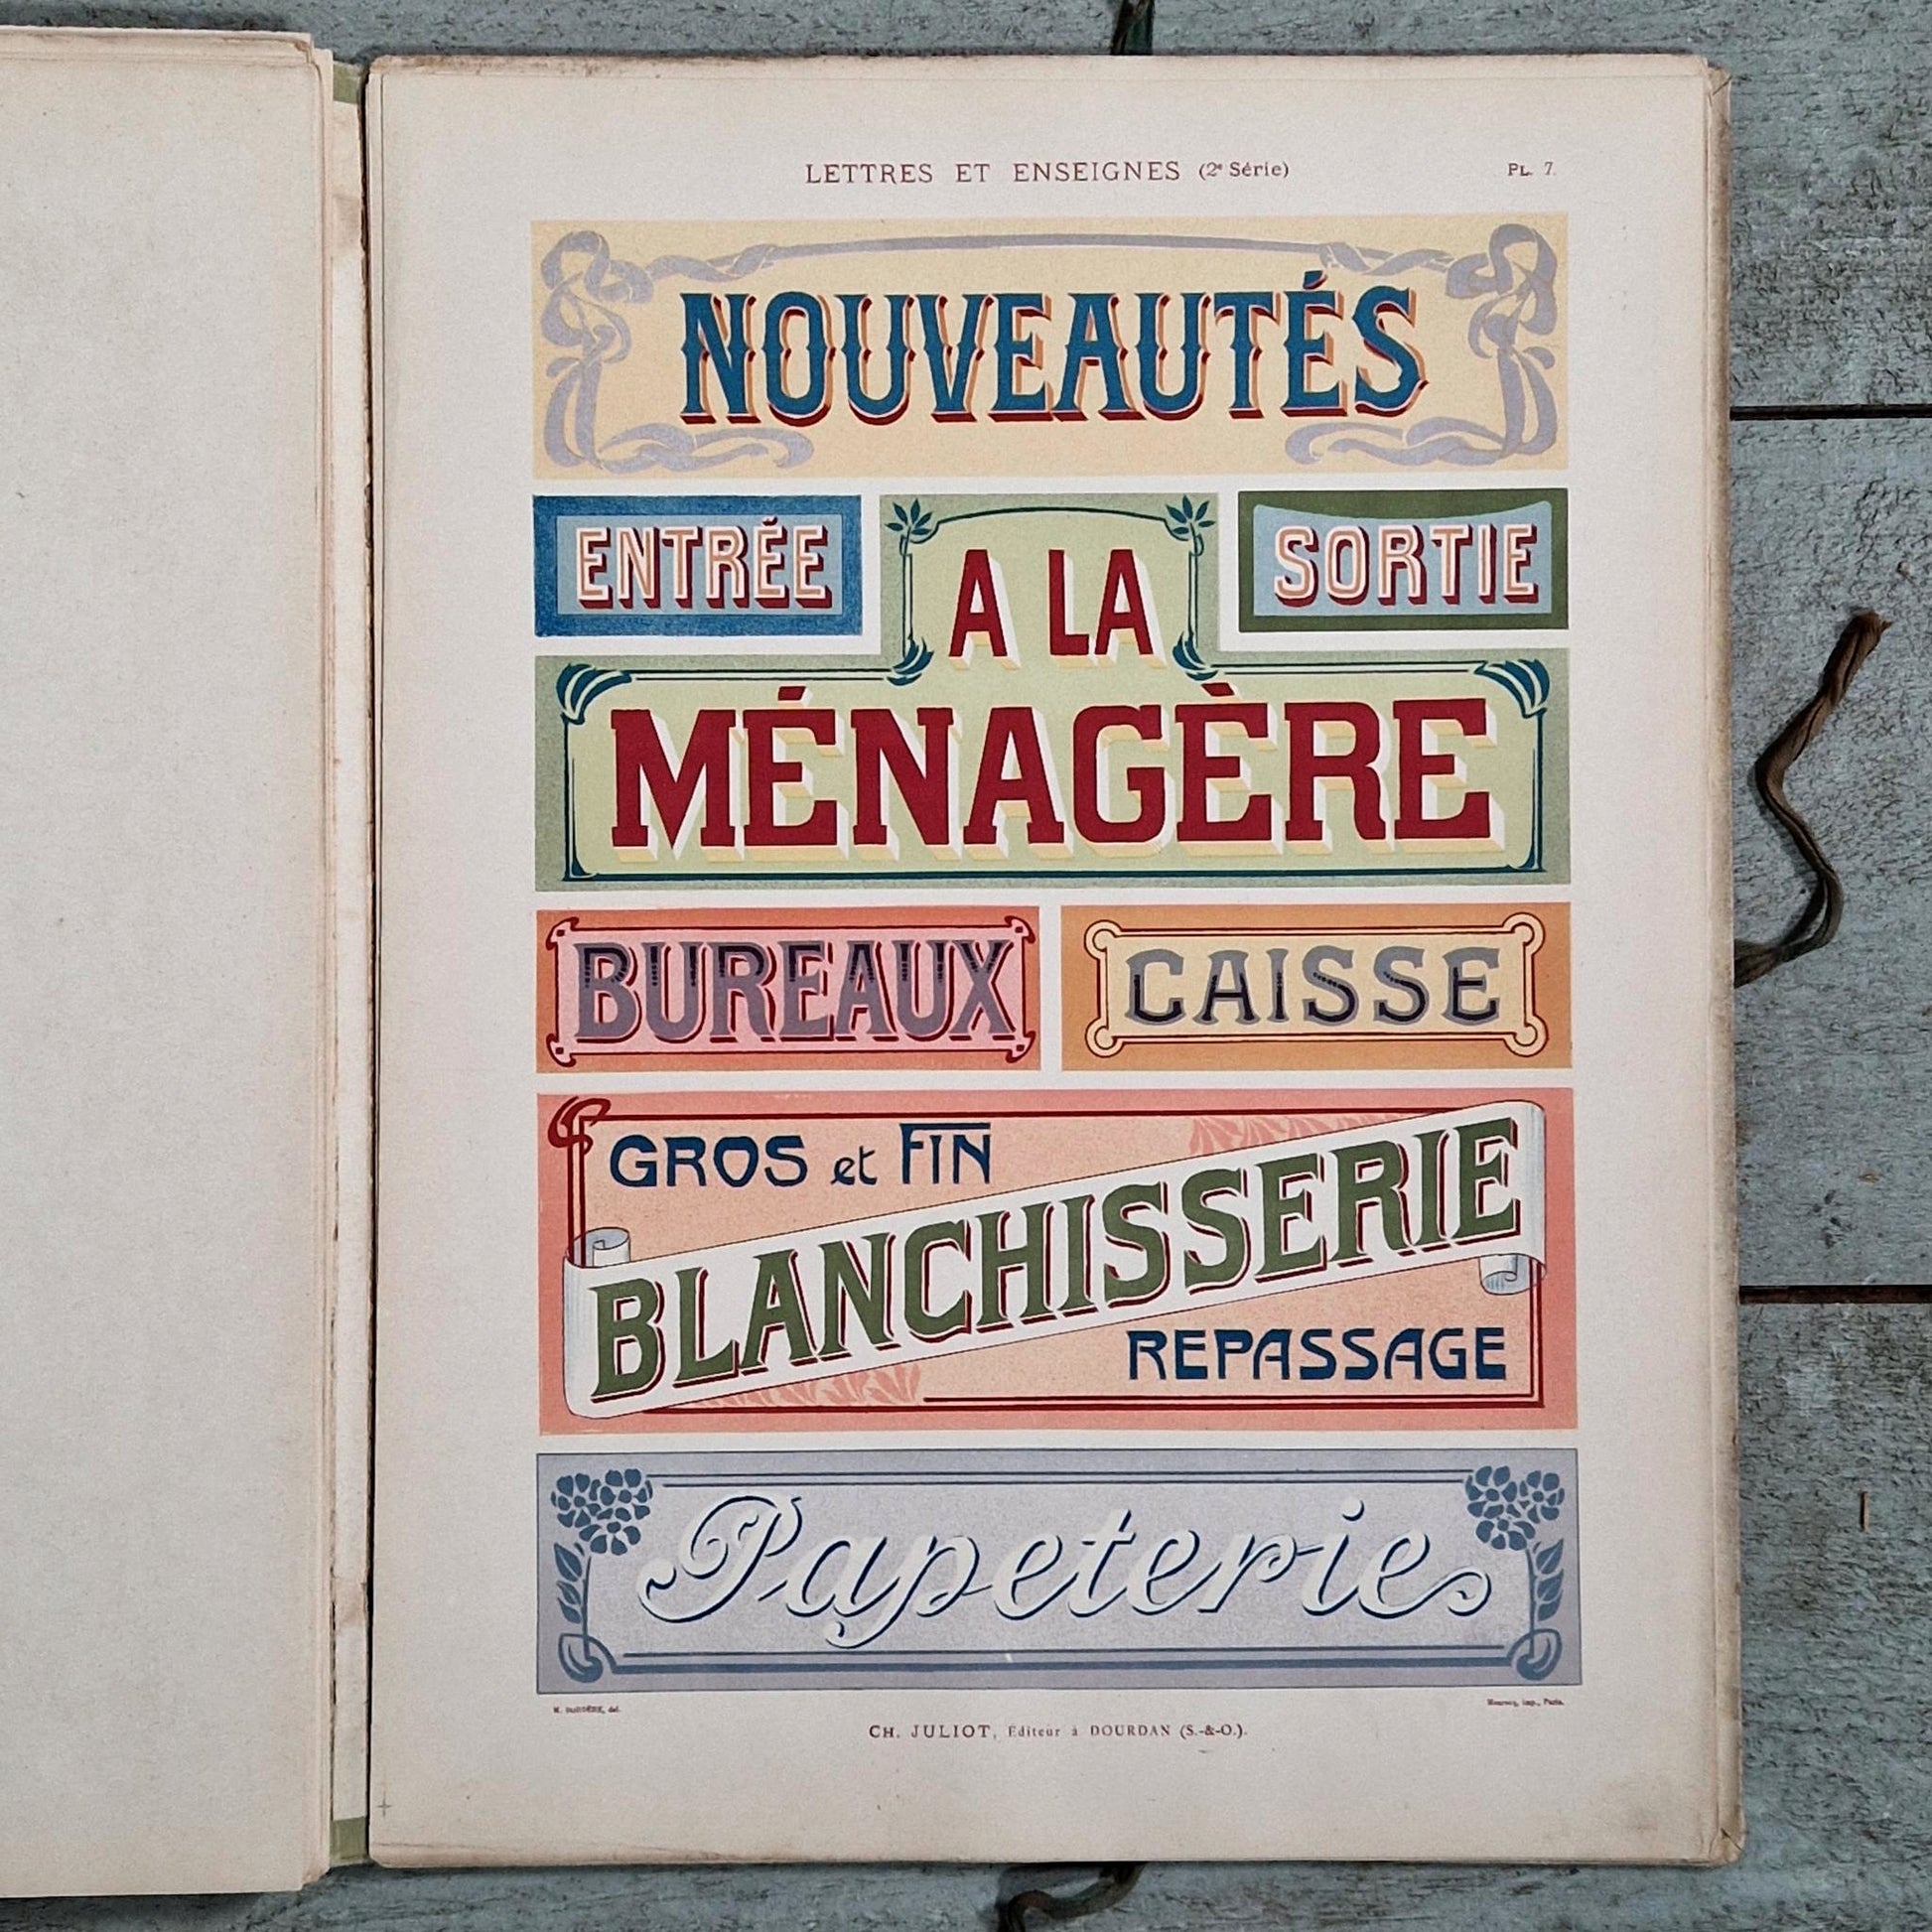 LETTRES ET ENSEIGNES (2e Série)
PL. 7.
NOUVEAUTÉS
ENTRÉE
A LA
SORTIE
MÉNAGÈRE
BUREAUX
CAISSE
GROS et FIN
BLANCHISSERIE
REPASSAGE
Papeterie
imp., Paris.
CH. JULIOT, Éditeur à DOURDAN (S.-&-O.).